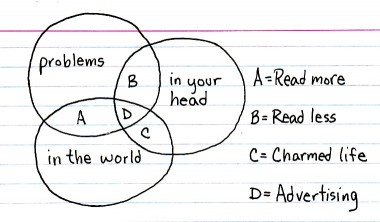 problems
in your
head
in the world
A
B
C
D
A=Read more
B=Read less
C=Charmed life
D=Advertising